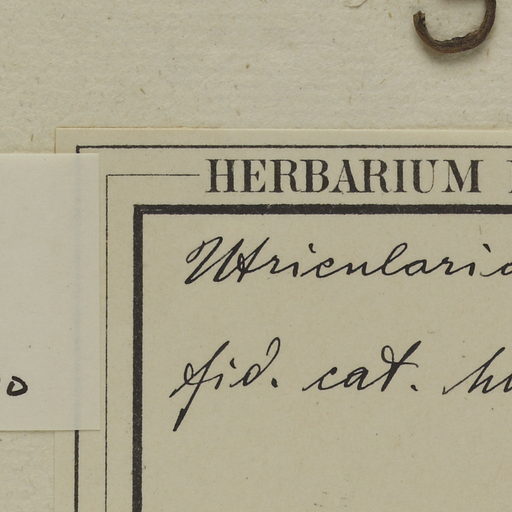 HERBARIUM
Utricularia
fid. cat.